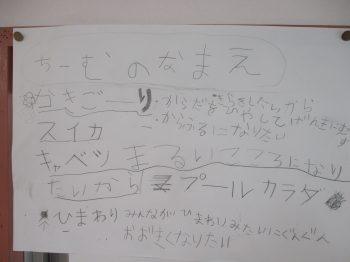 ちーむのなまえ
かきごーり・からだをひやしてげんきにします
・からふるになりたい
スイカ
キャベツ まるいココロになり
たいから プールカラダ
ひまわり みんながひまわりみたいにぐんぐん
おおきくなりたい